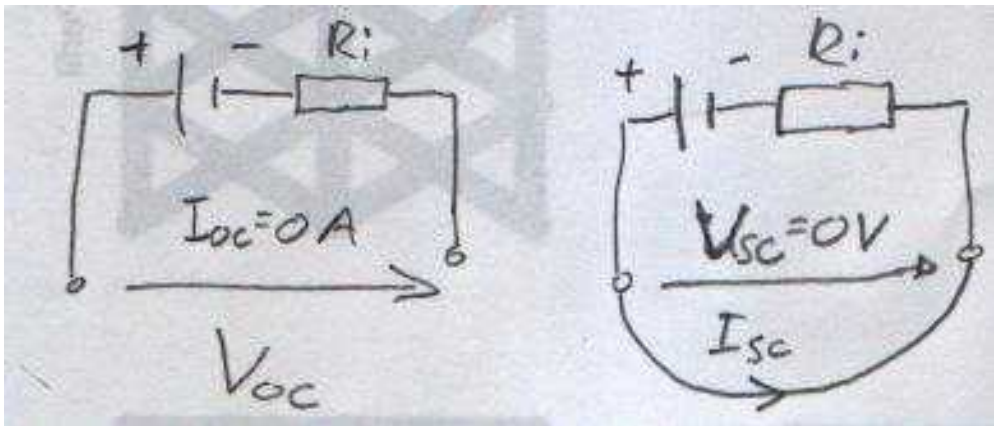 + - Ri
I_OC=0A
V_OC
+ - Ri
V_SC=0V
I_SC